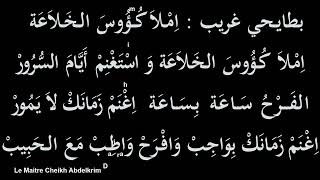 بطايحي غريب : اِمْلَا كُؤُوسَ الخَلَاعَة
اِمْلَا كُؤُوسَ الخَلَاعَة وَ اسْتَغْنِمْ أَيَّامَ السُّرُورْ
الفَرْحُ سَاعَة بِسَاعَة اِغْنَمْ زَمَانَكْ لَا يَمُورْ
اِغْنَمْ زَمَانَكْ بِوَاجِبْ وَافْرَحْ وَطِبْ مَعَ الحَبِيبْ
Le Maitre Cheikh Abdelkrim D